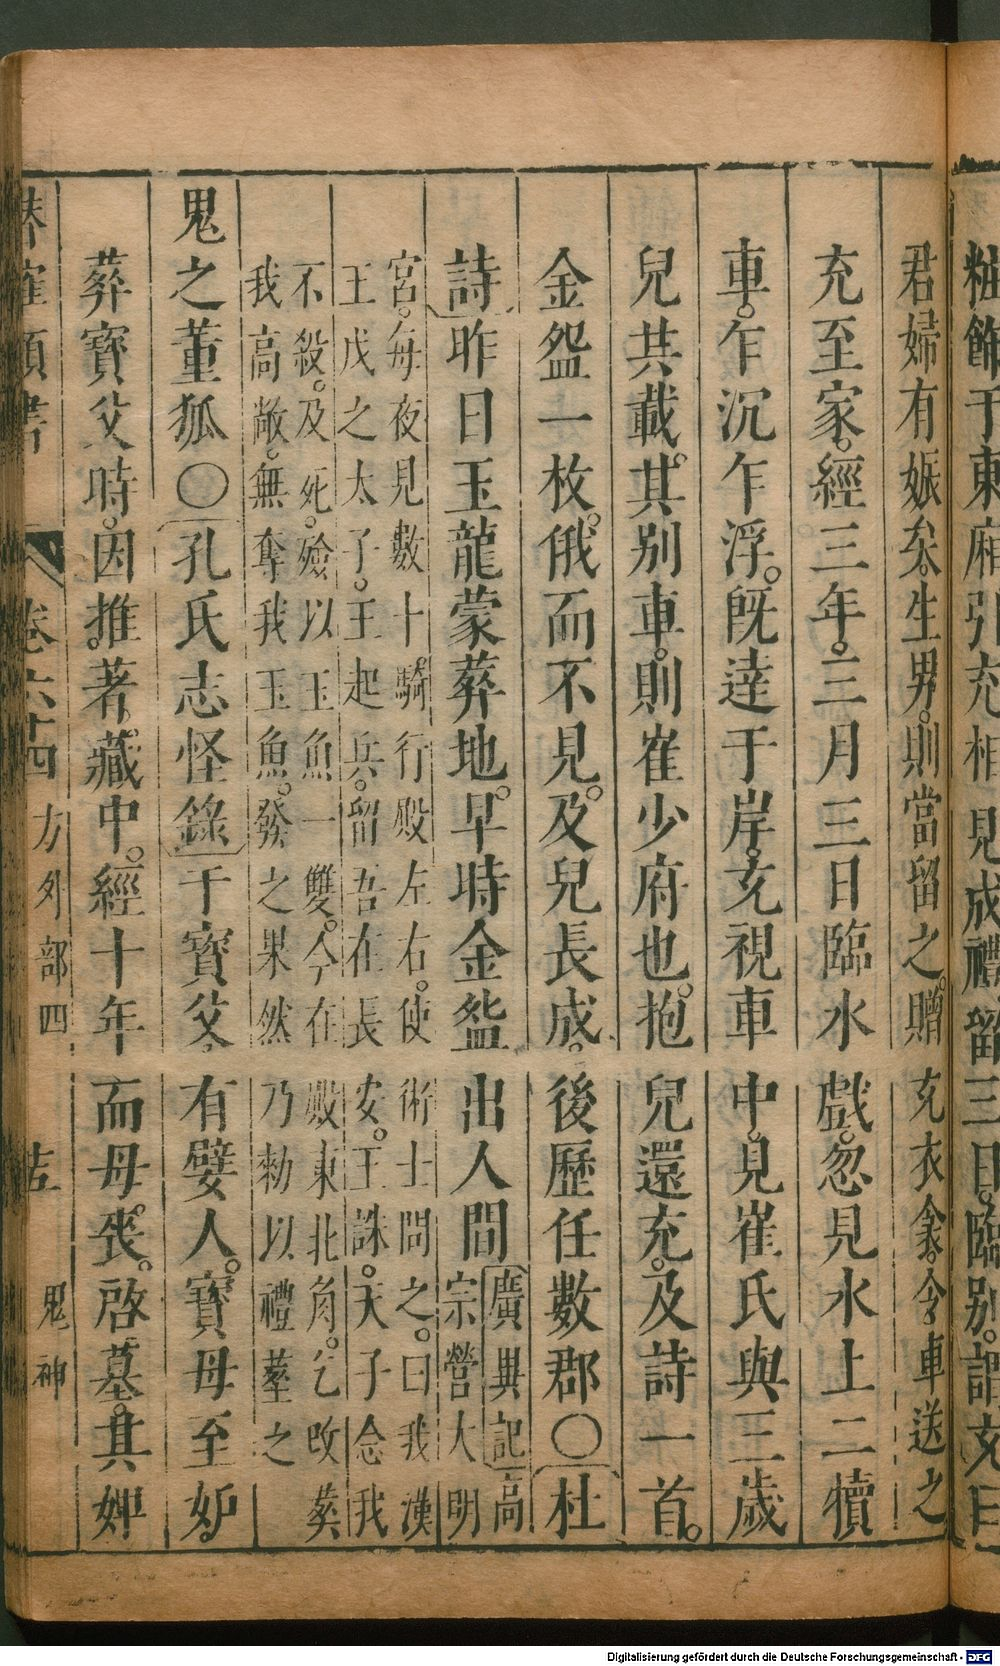 粧飾于東廂引充相見成禮留三日臨別謂充曰
君婦有娠矣生男則當留之贈充衣衾令車送之
充至家經三年三月三日臨水戲忽見水上二犢
車乍沉乍浮既達于岸充視車中見崔氏與三歲
兒共載其別車則崔少府也抱兒還充及詩一首
金盌一枚俄而不見及兒長成後歷任數郡〇杜
詩昨日玉龍蒙葬地早時金盌出人間
廣異記高
宗營大明
宮每夜見數十騎行殿左右使術士問之曰我漢
王戊之太子王起兵留吾在長安王誅天子念我
不殺及死殮以玉魚一雙今在殿東北角乞改葬
我高敞無奪我玉魚發之果然乃勑以禮塟之
鬼之董狐〇孔氏志怪錄干寳父有嬖人寳母至妒
葬寳父時因推著藏中經十年而母喪啓墓其婢
類書 卷六十四 方外部四 鬼神
Digitalisierung gefördert durch die Deutsche Forschungsgemeinschaft - DFG